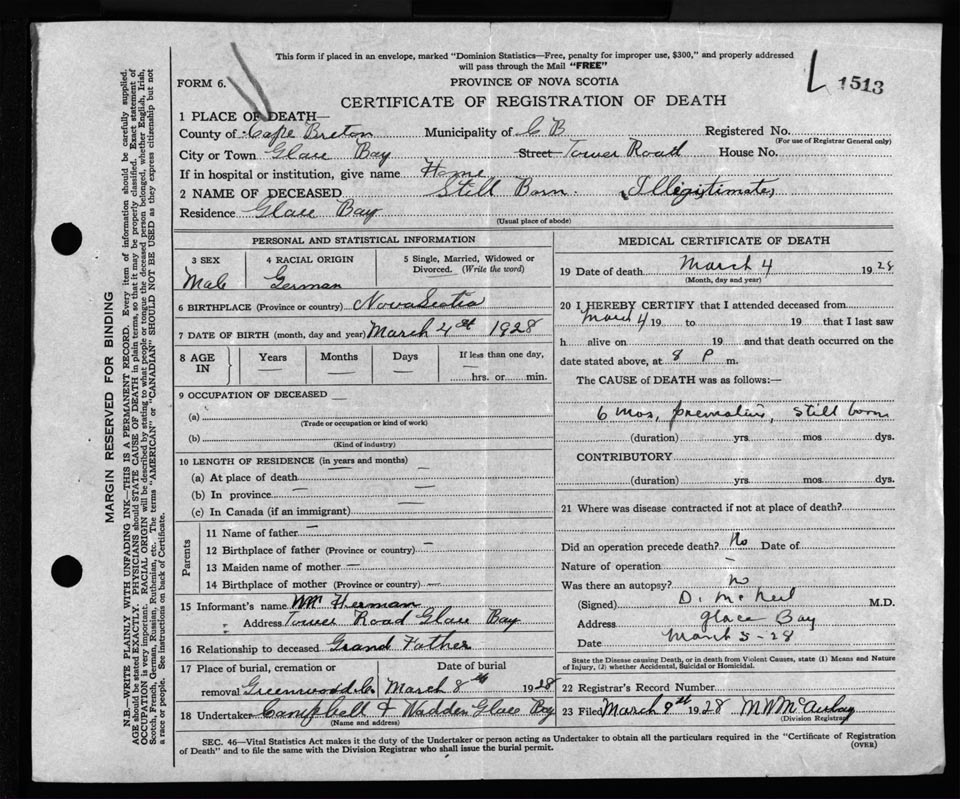 This form if placed in an envelope, marked "Dominion Statistics—Free, penalty for improper use, $300," and properly addressed
will pass through the Mail "FREE"
FORM 6.
PROVINCE OF NOVA SCOTIA
L 1513
CERTIFICATE OF REGISTRATION OF DEATH
1 PLACE OF DEATH—
County of Cape Breton Municipality of C B Registered No.
(For use of Registrar General only)
City or Town Glace Bay Street Tower Road House No.
If in hospital or institution, give name Home
2 NAME OF DECEASED Still Born. (Illegitimate)
Residence Glace Bay
(Usual place of abode)
PERSONAL AND STATISTICAL INFORMATION
3 SEX 4 RACIAL ORIGIN 5 Single, Married, Widowed or
Divorced. (Write the word)
Male German —
6 BIRTHPLACE (Province or country) Nova Scotia
7 DATE OF BIRTH (month, day and year) March 4st 1928
8 AGE IN Years Months Days If less than one day,
— — — —
hrs. or min.
9 OCCUPATION OF DECEASED —
(a)
(Trade or occupation or kind of work)
(b)
(Kind of industry)
10 LENGTH OF RESIDENCE (in years and months)
(a) At place of death —
(b) In province —
(c) In Canada (if an immigrant) —
Parents
11 Name of father —
12 Birthplace of father (Province or country) —
13 Maiden name of mother —
14 Birthplace of mother (Province or country) —
15 Informant's name Wm Herman
Address Tower Road Glace Bay
16 Relationship to deceased Grand Father
17 Place of burial, cremation or Date of burial
removal Greenwood March 8th 1928
18 Undertaker Campbell & Wadden Glace Bay
(Name and address)
MEDICAL CERTIFICATE OF DEATH
19 Date of death March 4 1928
(Month, day and year)
20 I HEREBY CERTIFY that I attended deceased from
March 4 19 to 19 that I last saw
h alive on 19 and that death occurred on the
date stated above, at 8 P m.
The CAUSE of DEATH was as follows:—
6 mos, still born
(duration) yrs. mos dys.
CONTRIBUTORY
(duration) yrs. mos. dys.
21 Where was disease contracted if not at place of death?
Did an operation precede death? No Date of
Nature of operation —
Was there an autopsy? no
(Signed) D. McNeil M.D.
Address Glace Bay
Date March 5-28
State the Disease causing Death, or in death from Violent Causes, state (1) Means and Nature
of Injury, (2) whether Accidental, Suicidal or Homicidal.
22 Registrar's Record Number
23 Filed March 8st 1928 M W
(Division Registrar)
SEC. 46—Vital Statistics Act makes it the duty of the Undertaker or person acting as Undertaker to obtain all the particulars required in the "Certificate of Registration
of Death" and to file the same with the Division Registrar who shall issue the burial permit.
(OVER)
MARGIN RESERVED FOR BINDING
N.B.—WRITE PLAINLY WITH UNFADING INK—THIS IS A PERMANENT RECORD. Every item of information should be carefully supplied.
AGE should be stated EXACTLY. PHYSICIANS should STATE CAUSE OF DEATH in plain terms, so that it may be properly classified. Exact statement of
OCCUPATION is very important. RACIAL ORIGIN will be described by stating to what people or tongue the deceased person belonged, whether English, Irish,
Scotch, French, German, Russian, Ruthenian, etc. The terms "AMERICAN" or "CANADIAN" SHOULD NOT BE USED as they express citizenship but not
a race or people. See instructions on back of Certificate.